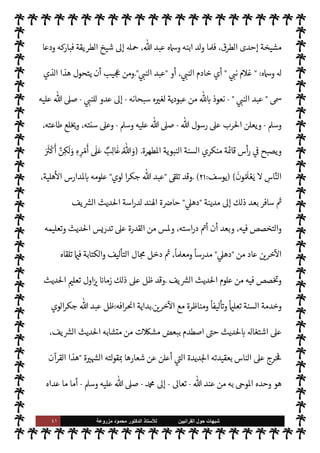 مشيخة إحدى الطرق، فلما ولد ابنه وسماه عبد الله، حمله إلى شيخ الطريقة فباركه ودعا
له وسماه: " غلام نبي " أي خادم النبي، أو "عبد النبي".ومن عجيب أن يتحول هذا الذي
سمى " عبد النبي " - نعوذ بالله من عبودية لغيره سبحانه - إلى عدو للنبي - صلى الله عليه
وسلم - ويعلن الحرب على رسول الله - صلى الله عليه وسلم - وعلى سنته، ويخلع طاعته،
ويصبح في رأس قائمة منكري السنة النبوية المطهرة. (وَاللَّهُ غَالِبٌ عَلَى أَمْرِهِ وَلَكِنَّ أَكْثَرَ
النَّاسِ لا يَعْلَمُونَ) (يوسف:٢١) .وقد تلقى "عبد الله جكرا لوي" علومه بالمدارس الأهلية،
ثم سافر بعد ذلك إلى مدينة "دهلي" حاضرة الهند لدراسة الحديث الشريف
والتخصص فيه، وبعد أن أتم دراسته، ولمس من القدرة على تدريس الحديث وتعليمه
الآخرين عاد من "دهلي" مدرساً ومعلماً، ثم دخل مجال التأليف والكتابة فيما تلقاه
وتخصص فيه من علوم الحديث الشريف .وقد ظل على ذلك زمانا يزاول تعليم الحديث
وخدمة السنة تعليماً وتأليفاً ومناظرة مع الآخرين.بداية انحرافه:ظل عبد الله جكرالوي
على اشتغاله بالحديث حتى اصطدم ببعض مشكلات من متشابه الحديث الشريف،
فخرج على الناس بعقيدته الجديدة التي أعلن عن شعارها بمقولته الشهيرة "هذا القرآن
هو وحده الموحى به من عند الله - تعالى - إلى محمد - صلى الله عليه وسلم - أما ما عداه
شبهات حول القرآنيين للأستاذ الدكتور محمود مزروعة ٤١